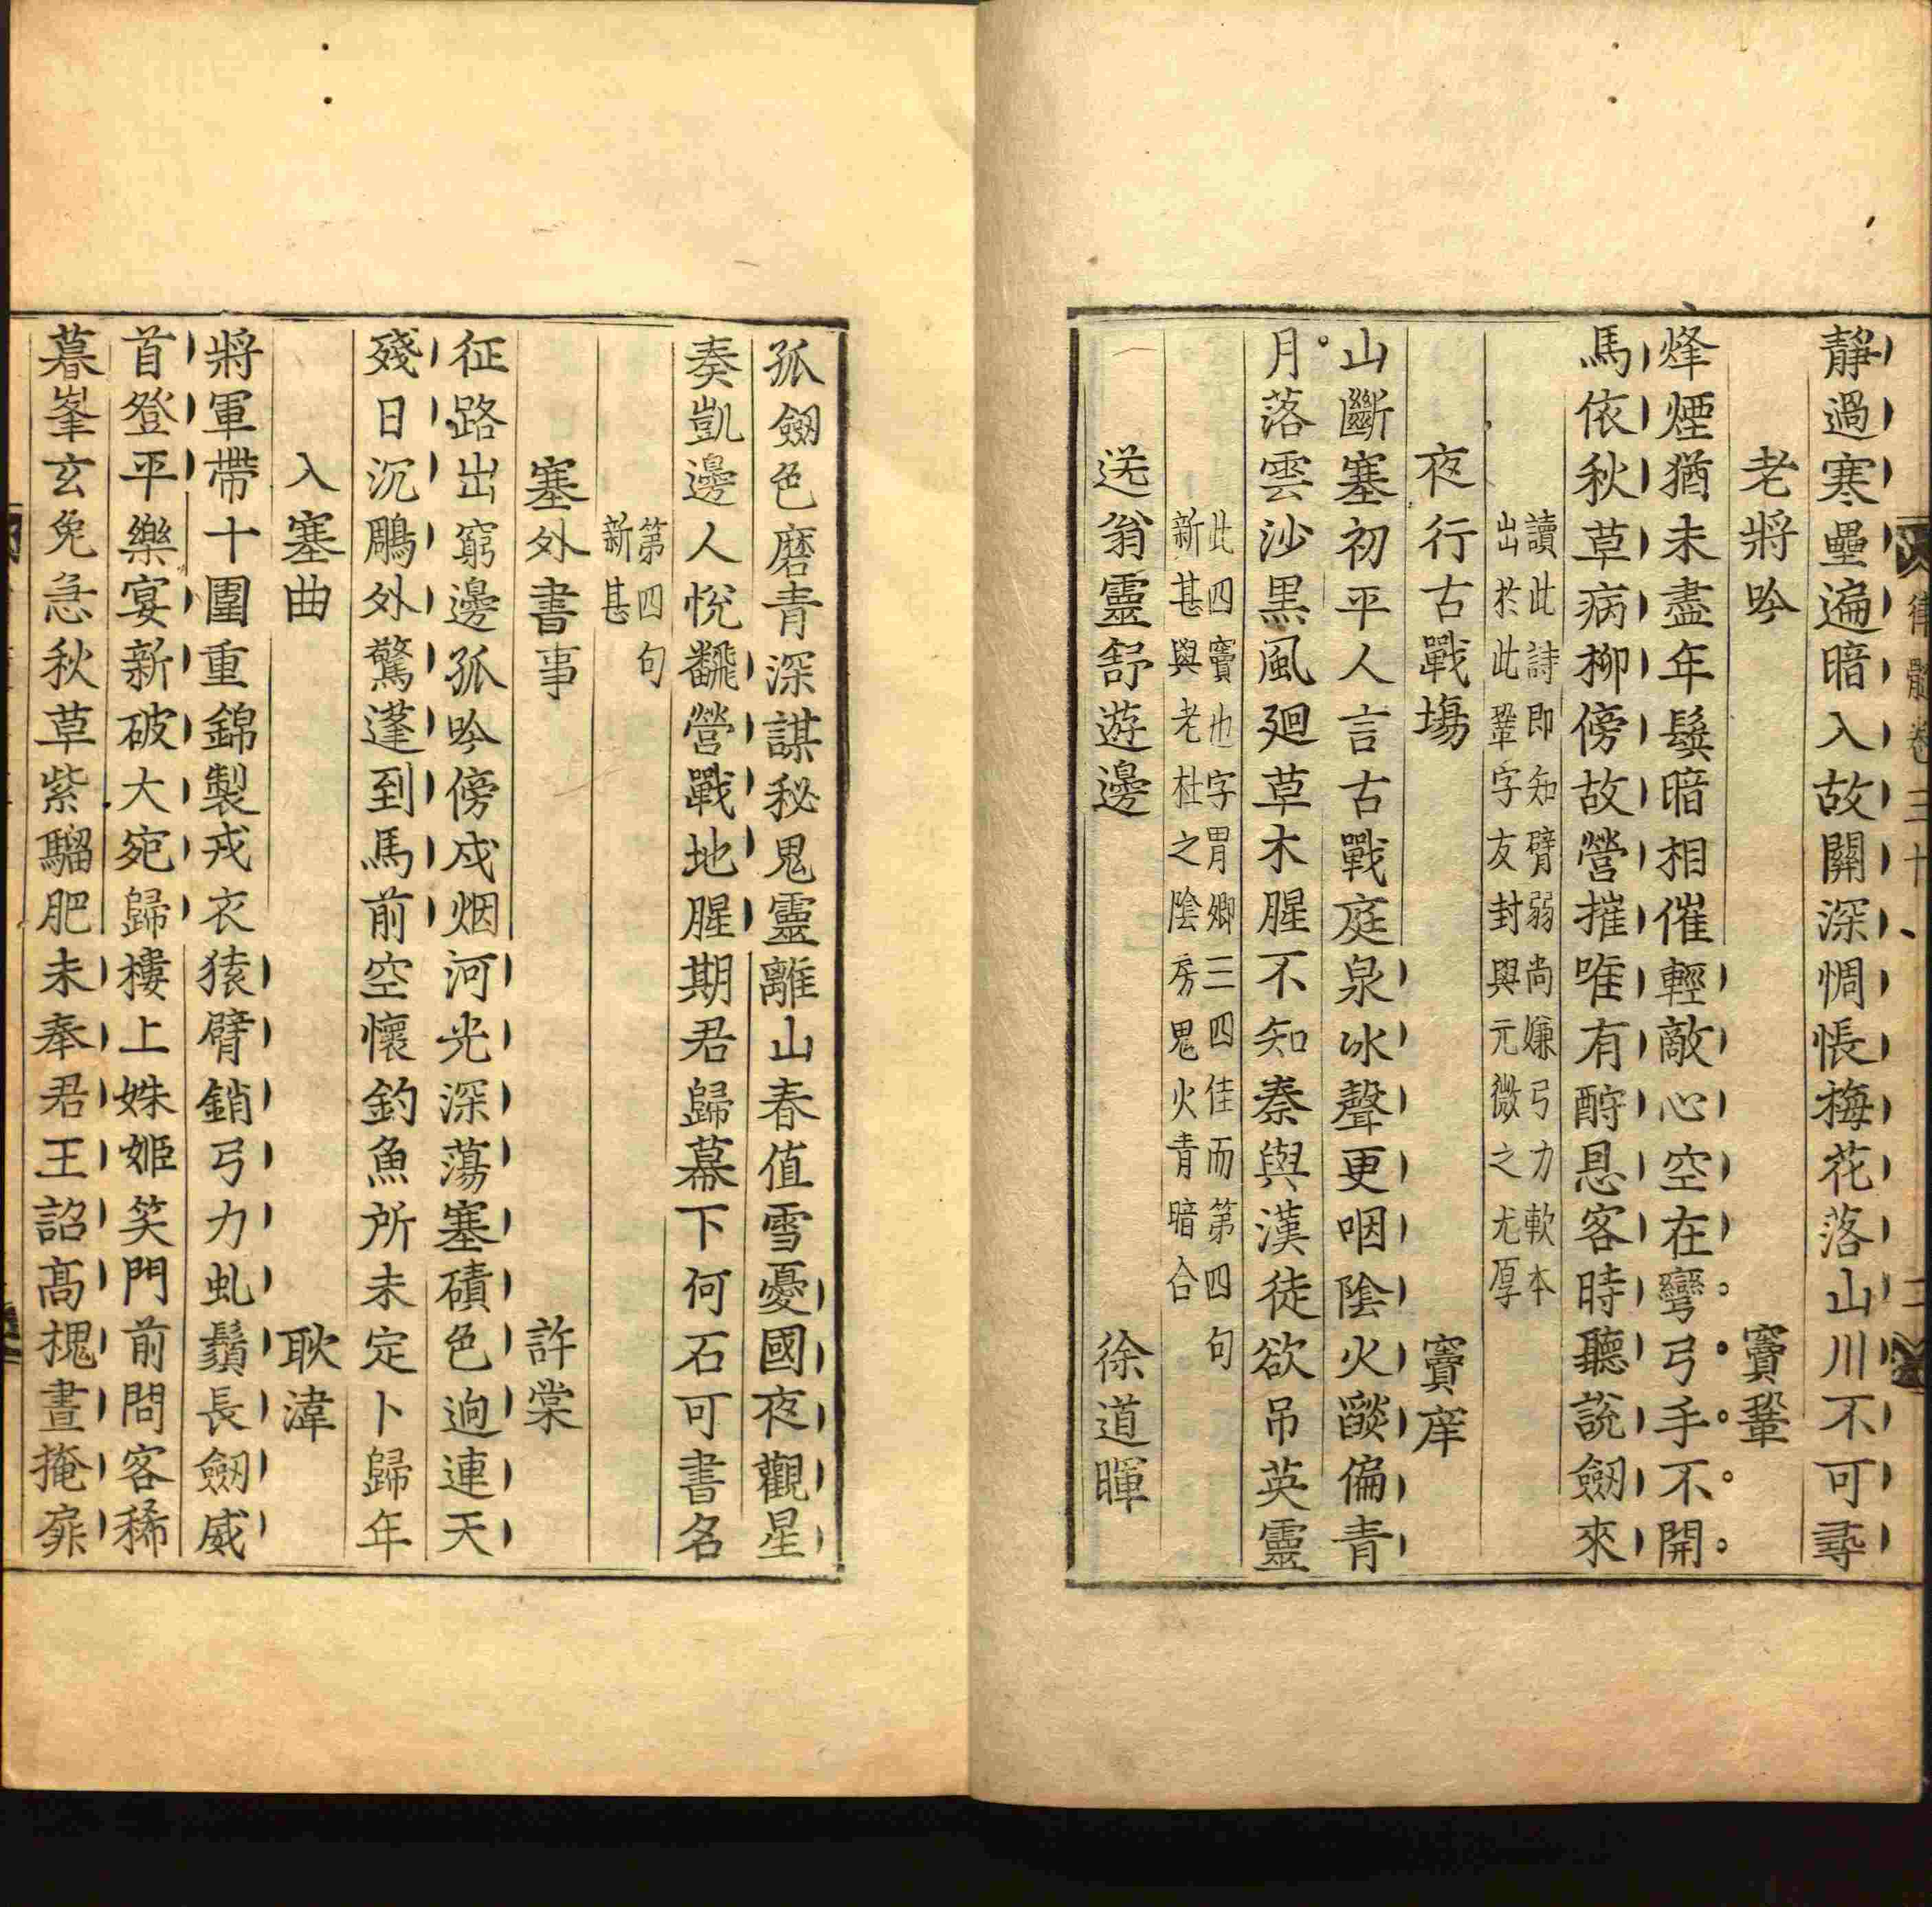 律髓卷三十
靜過寒壘遍暗入故關深惆悵梅花落山川不可尋
老將吟 竇鞏
烽煙猶未盡年鬢暗相催輕敵心空在彎弓手不開
馬依秋草病柳傍故營摧唯有酧恩客時聽說劒來
讀此詩即知臂弱尚嫌弓力軟本
出於此鞏字友封與元微之尤厚
夜行古戰場 竇庠
山斷塞初平人言古戰庭泉冰聲更咽陰火燄偏青
月落雲沙黑風廻草木腥不知秦與漢徒欲吊英靈
此四竇也字胃卿三四佳而第四句
新甚與老杜之陰房鬼火青暗合
送翁靈舒遊邊 徐道暉
孤劒色磨青深謀秘鬼靈離山春值雪憂國夜觀星
奏凱邊人悅飜營戰地腥期君歸幕下何石可書名
第四句
新甚
塞外書事 許棠
征路出窮邊孤吟傍戍烟河光深蕩塞磧色逈連天
殘日沉鵰外驚蓬到馬前空懷釣魚所未定卜歸年
入塞曲 耿湋
將軍帶十圍重錦製戎衣猿臂銷弓力虬鬚長劒威
首登平樂宴新破大宛歸樓上姝姬笑門前問客稀
暮峯玄免急秋草紫騮肥未奉君王詔高槐晝掩扉